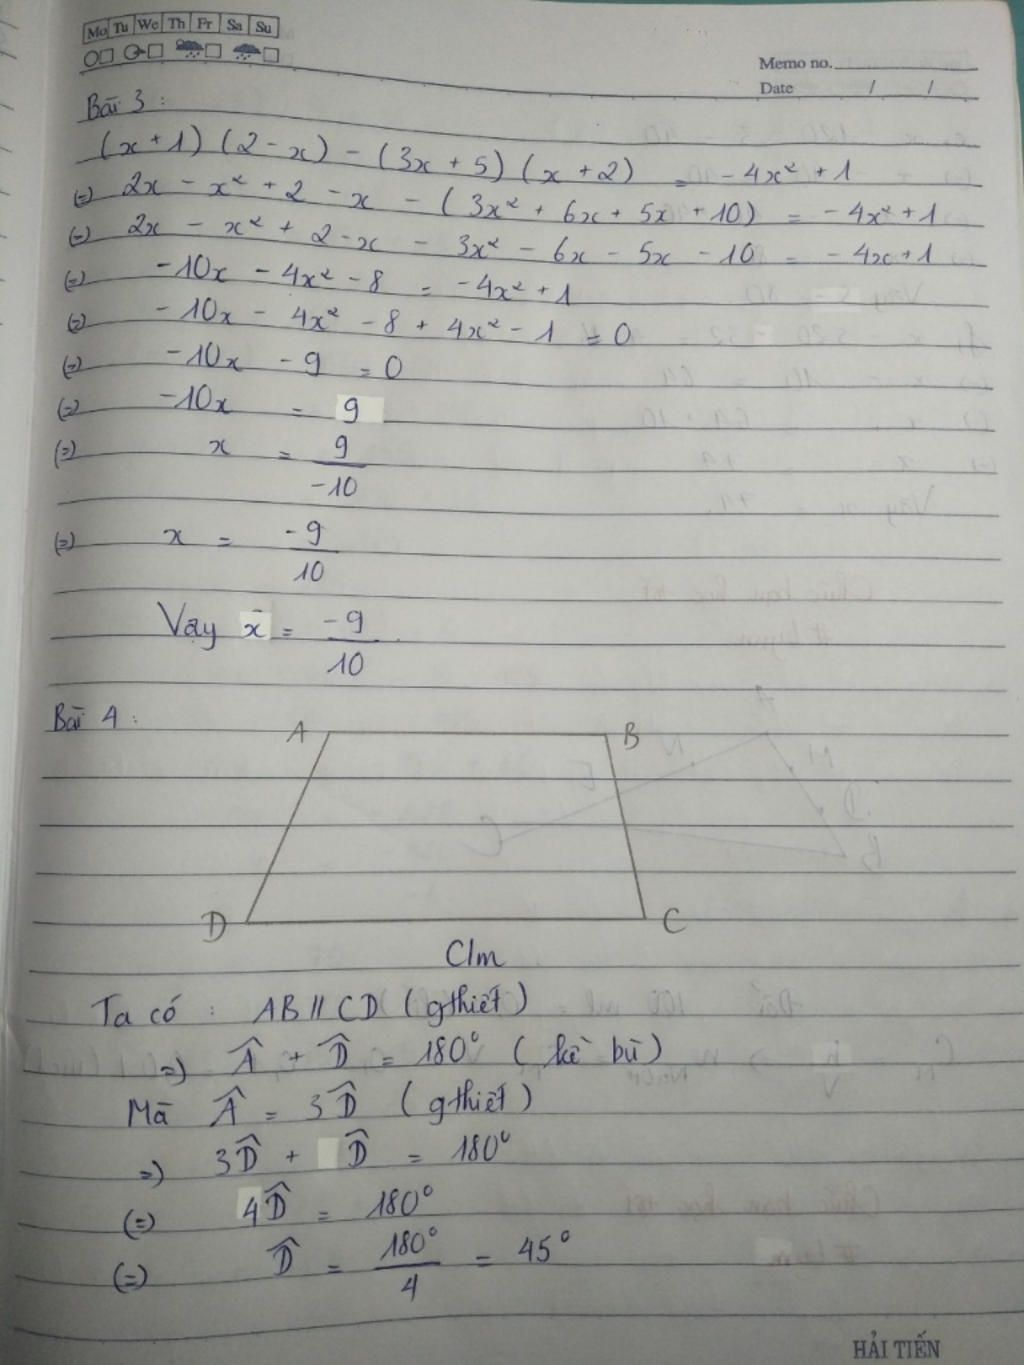 Mo Tu We Th Fr Sa Su
Memo no.
Date / /
Bài 3 :
(x + 1) (2 - x) - (3x + 5) (x + 2) = - 4x² + 1
(=) 2x - x² + 2 - x - (3x² + 6x + 5x + 10) = - 4x² + 1
(=) 2x - x² + 2 - x - 3x² - 6x - 5x - 10 = - 4x + 1
(=) - 10x - 4x² - 8 = - 4x² + 1
(=) - 10x - 4x² - 8 + 4x² - 1 = 0
(=) - 10x - 9 = 0
(=) - 10x = 9
(=) x = 9 / -10
(=) x = -9 / 10
Vậy x = -9 / 10
Bài 4 :
A B
D C
C/m
Ta có : AB // CD ( gthiết )
=) Â + D̂ = 180° ( kề bù )
Mà Â = 3D̂ ( gthiết )
=) 3D̂ + D̂ = 180°
(=) 4D̂ = 180°
(=) D̂ = 180° / 4 = 45°
HẢI TIẾN